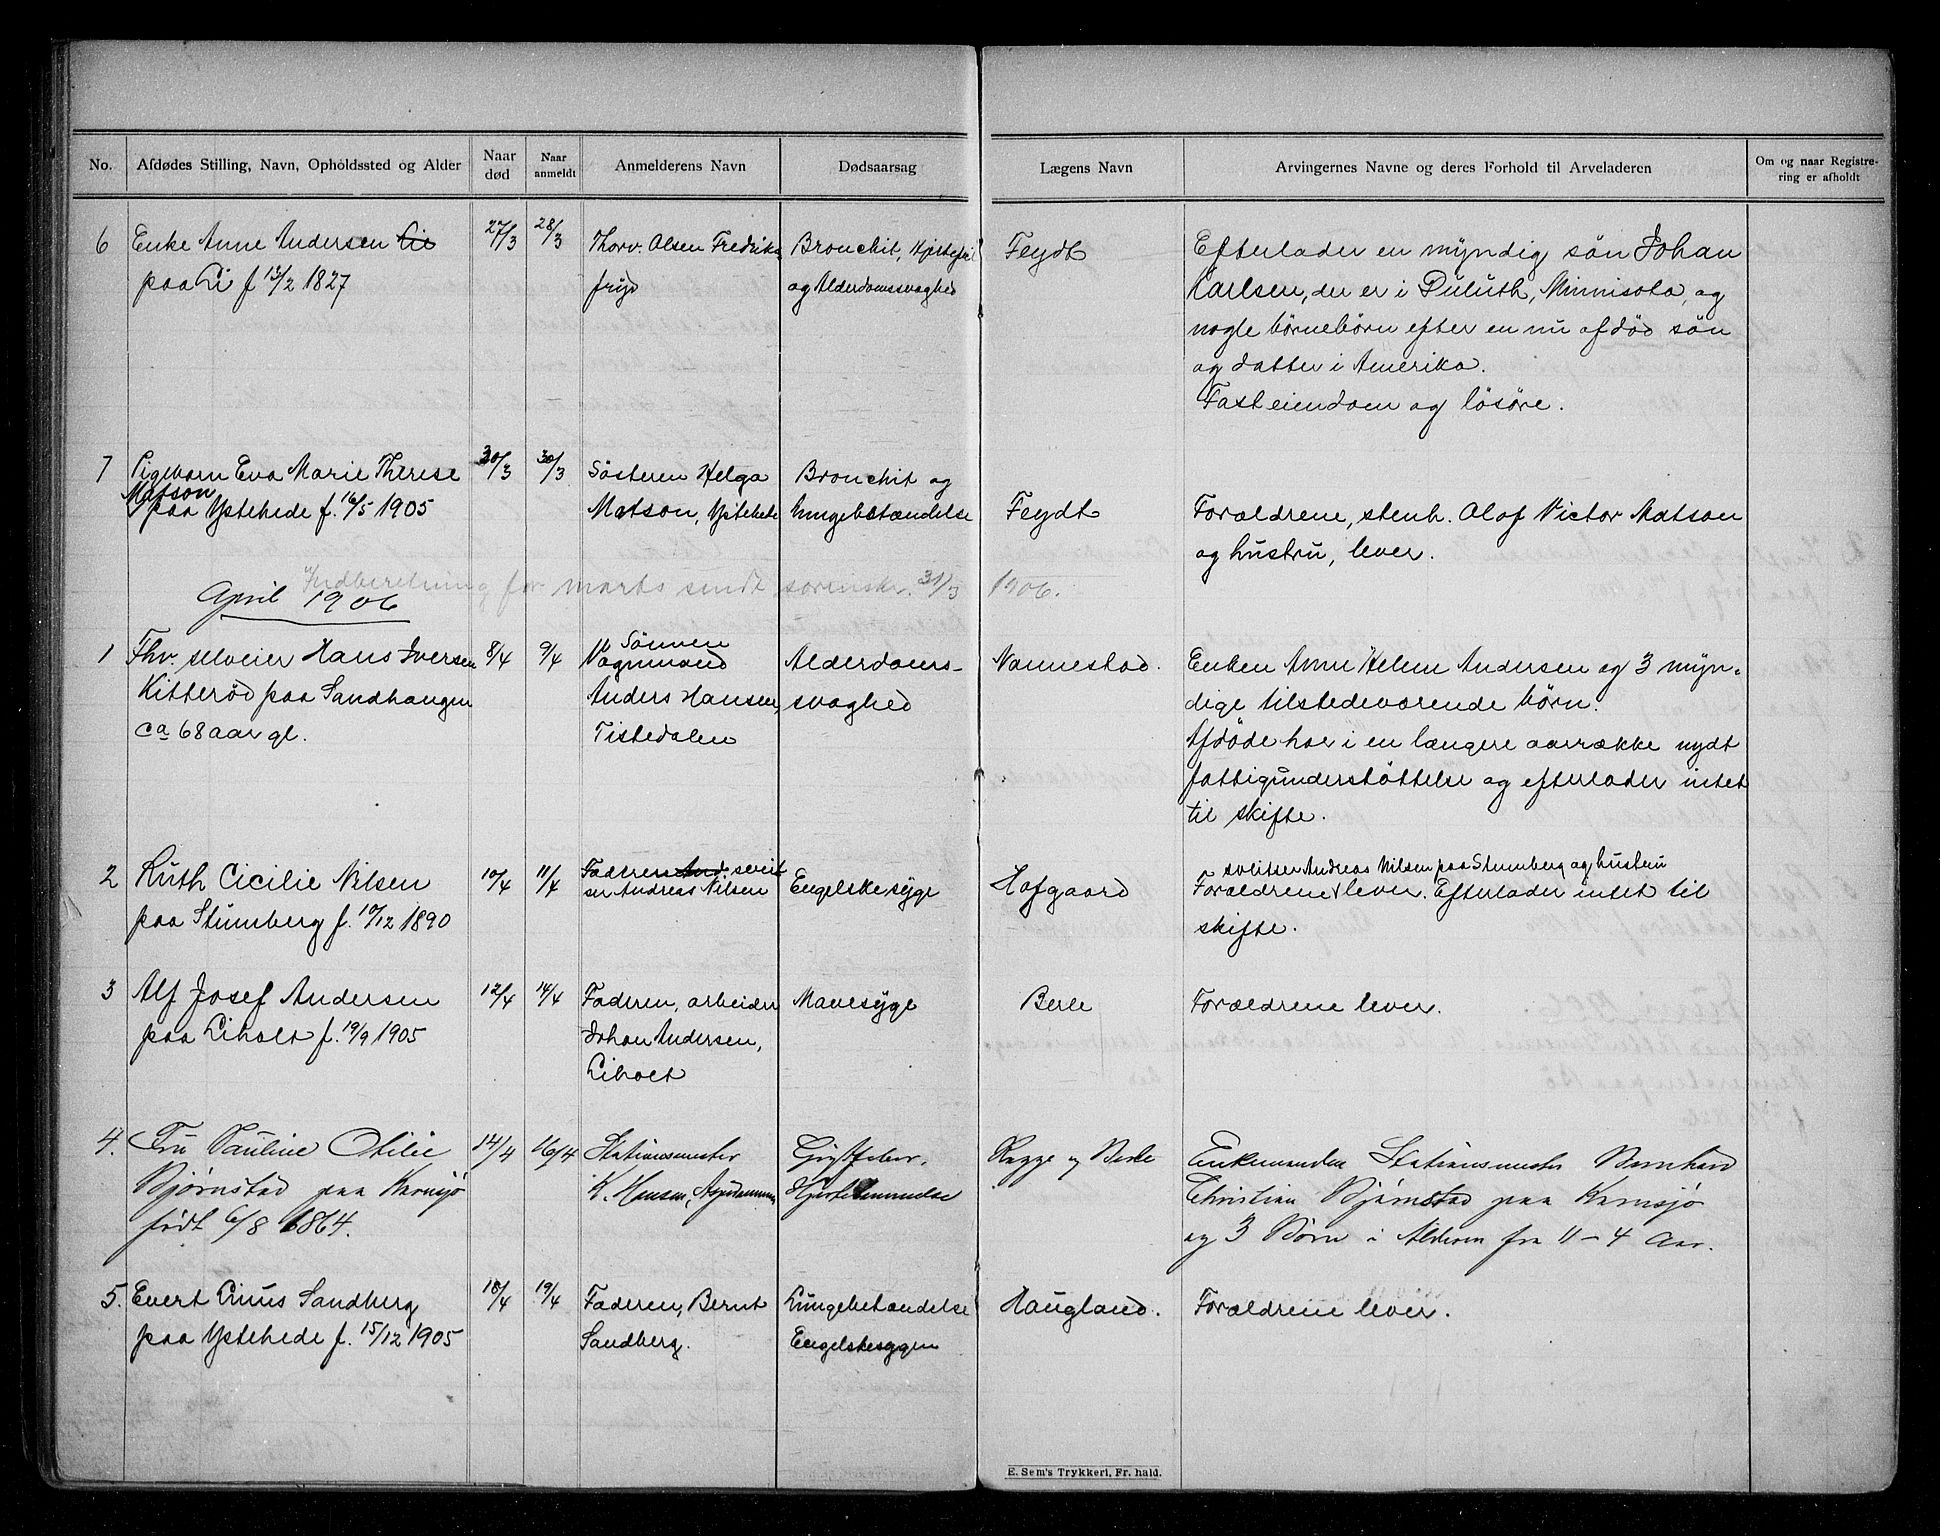 No. Afdødes Stilling, Navn, Opholdssted og Alder Naar død Naar anmeldt Anmelderens Navn Dødsaarsag Lægens Navn Arvingernes Navne og deres Forhold til Arveladeren Om og naar Registrering er afholdt
6 Enke Anne Andersen Lie 27/3 28/3 Thorv. Olsen Fredriks Bronchit, Hjertefeil Feydt Efterlader en myndig søn Johan
paa Li f 13/2 1827 fryd og Alderdomssvaghed Karlsen, der er i Duluth, Minnisota, og
nogle børnebørn efter en nu afdød søn
og datter i Amerika.
Fast eiendom og løsøre.
7 Pigebarn Eva Marie Therese 30/3 30/3 Søsteren Helga Bronchit og
Matson
paa Ystehede f. 16/5 1905 Matson, Ystehede Lungebetændelse Feydt Forældrene, stenh. Olaf Victor Matson
og hustru, lever.
Indberetning for marts sendt sorenskr. 31/3 1906.
April 1906
1 Fhv. selveier Hans Iversen 8/4 9/4 Sønnen Vognmand Alderdoms- Nannestad. Enken Anne Helene Andersen og 3 myn-
Kitterød paa Sandhaugen Anders Hansen, svaghed dige tilstedeværende børn.
ca 68 aar gl. Tistedalen Afdøde har i en længere aarrække nydt
fattigunderstøttelse og efterlader intet
til skifte.
2 Ruth Cicilie Nilsen 10/4 11/4 Faderen And. Engelskesyge Hofgaard Forældrene lever. Efterlader intet til
Andreas Nilsen paa Stumberg og hustru
paa Stumberg f. 10/12 1890 Andreas Nilsen skifte.
3 Alf Josef Andersen 12/4 14/4 Faderen, arbeider Mavesyge Berle Forældrene lever.
paa Liholt f. 19/9 1905 Johan Andersen,
Liholt
4. Fru Pauline Otilie 14/4 16/4 Stationsmester Gigtfeber, Ragge og Berle Enkemanden Stationsmester Bernhard
Bjørnstad paa Kornsjø K. Hansen, Hjertelammelse Christian Bjørnstad paa Kornsjø
født 6/8 1864. og 3 Børn i Alderen fra 11-4 Aar.
5. Evert Linus Sandberg 18/4 19/4 Faderen, Bernt Lungebetændelse Haugland. Forældrene lever.
paa Ystehede f. 15/12 1905 Sandberg. Engelskesygen
E. Sem's Trykkeri, Fr.hald.